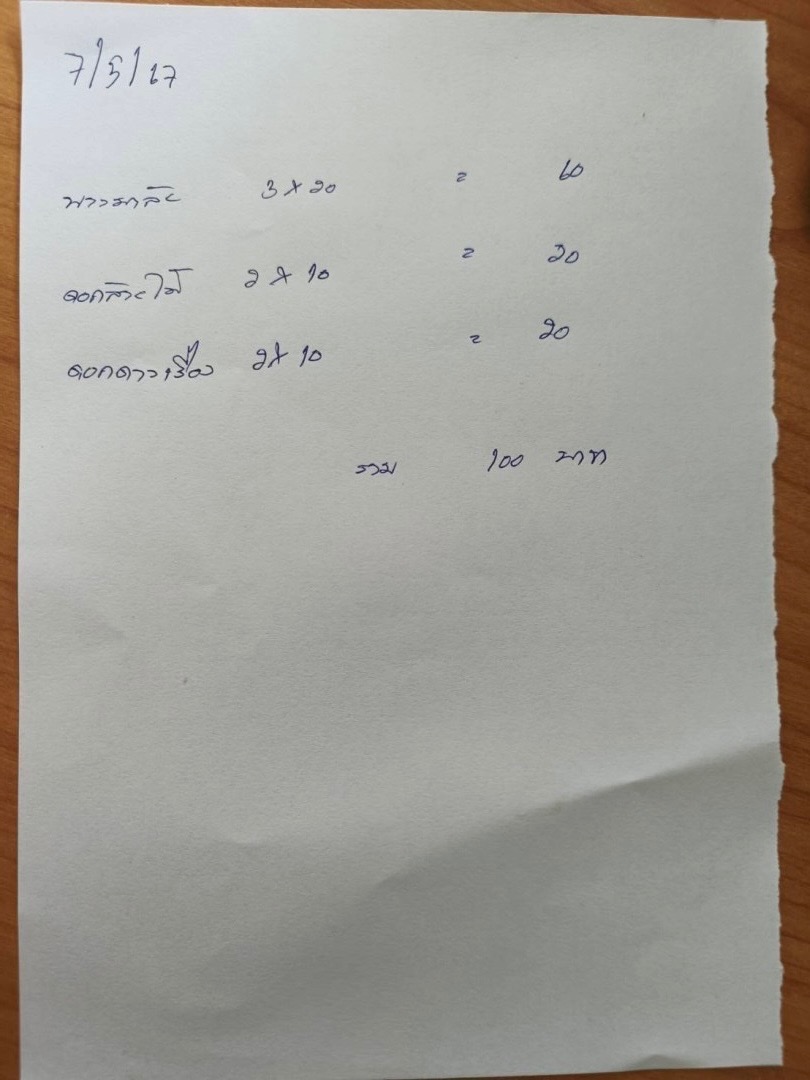 7/5/67
พวงมาลัย 3 x 20 = 60
ดอกกล้วยไม้ 2 x 10 = 20
ดอกดาวเรือง 2 x 10 = 20
รวม 100 บาท